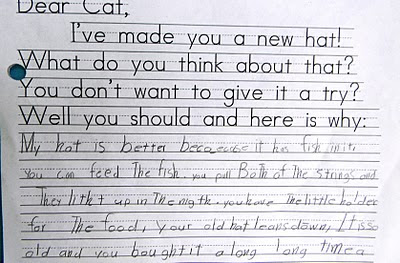 Dear Cat,
I've made you a new hat!
What do you think about that?
You don't want to give it a try?
Well you should and here is why:
My hat is better becaecause it has fish in it,
You can feed The fish. you pull Both of The strings and
They litht up in The nigth. you have The little holder
for The food, your old hat leansdown, It is so
old and you bought it a long long time a